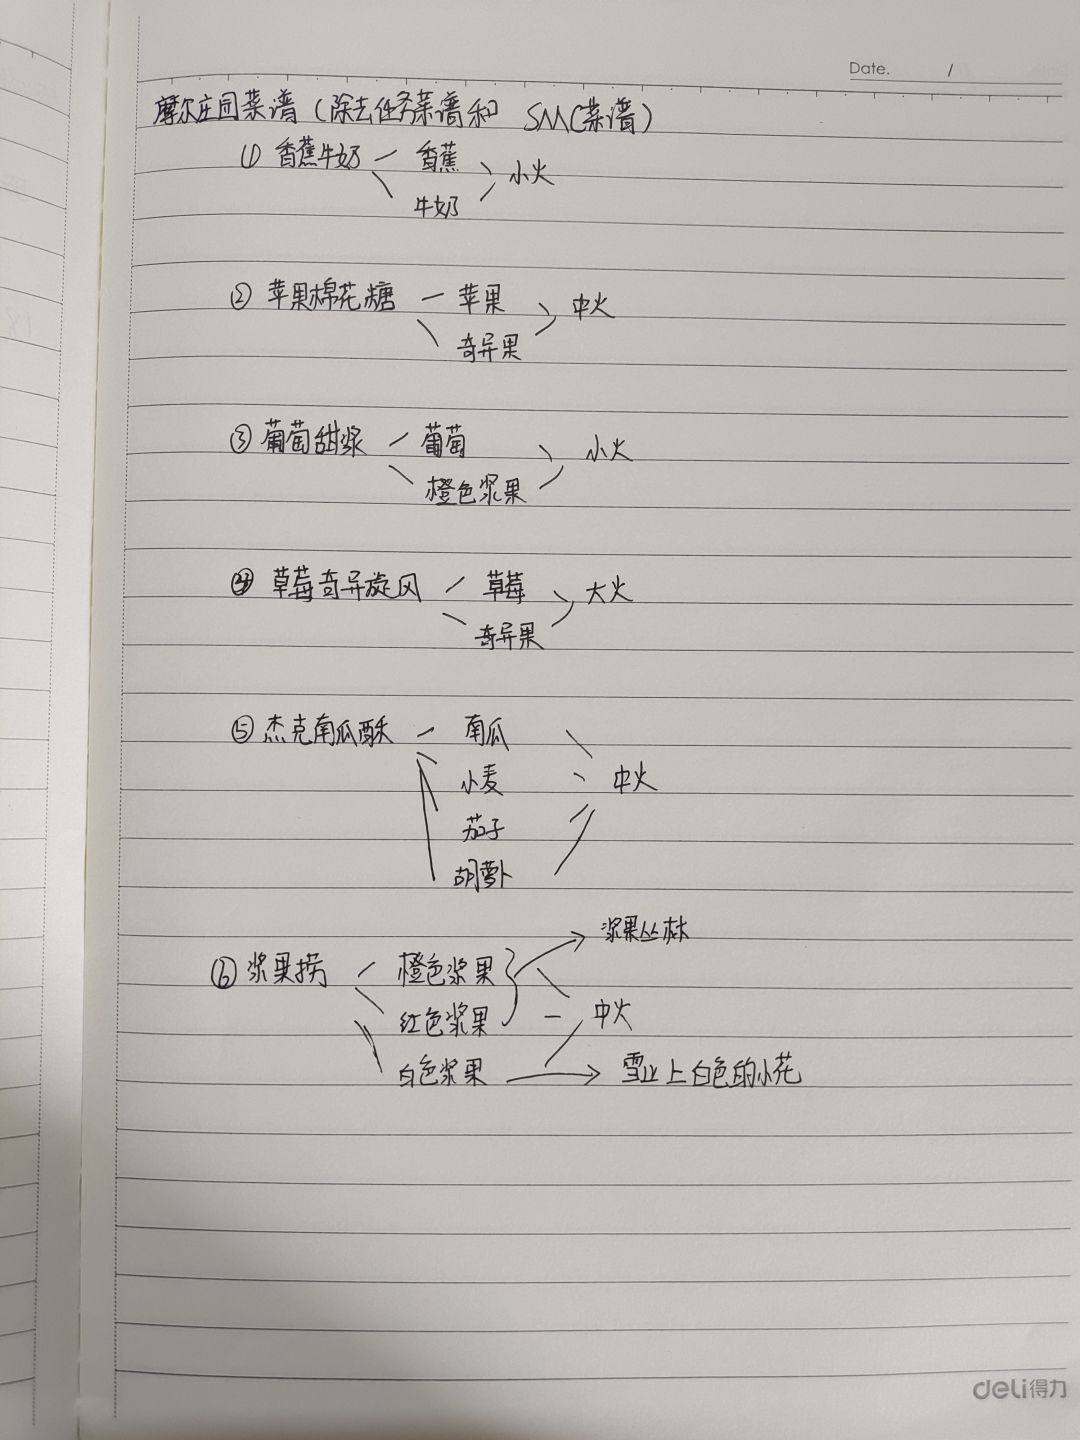 Date. /
摩尔庄园菜谱(除去任务菜谱和 SMC菜谱)
① 香蕉牛奶 — 香蕉
小火
牛奶
② 苹果棉花糖 — 苹果
中火
奇异果
③ 葡萄甜浆 — 葡萄
小火
橙色浆果
④ 草莓奇异旋风 — 草莓
大火
奇异果
⑤ 杰克南瓜酥 — 南瓜
小麦
中火
茄子
胡萝卜
浆果丛林
⑥ 浆果捞 — 橙色浆果
红色浆果 — 中火
白色浆果 → 雪山上白色的小花
deli得力